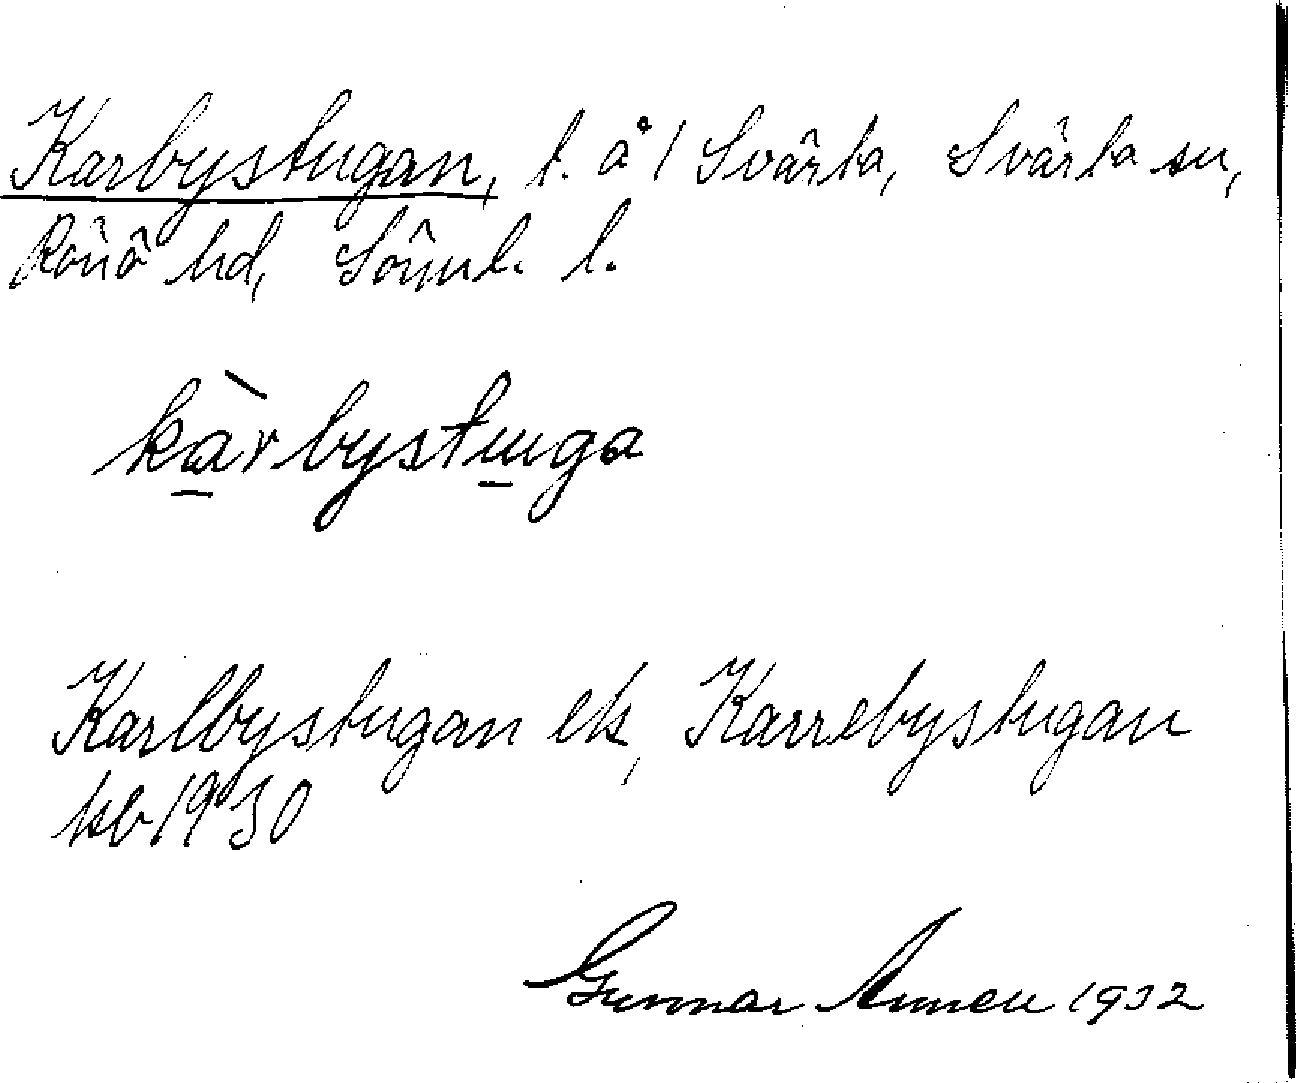 Karbystugan, t. å 1 Svärta, Svärta sn,
Rönö hd, Sörml. l.
kàrbystuga
Karlbystugan ek, Karrebystugan
kb 1930
Gunnar 1932